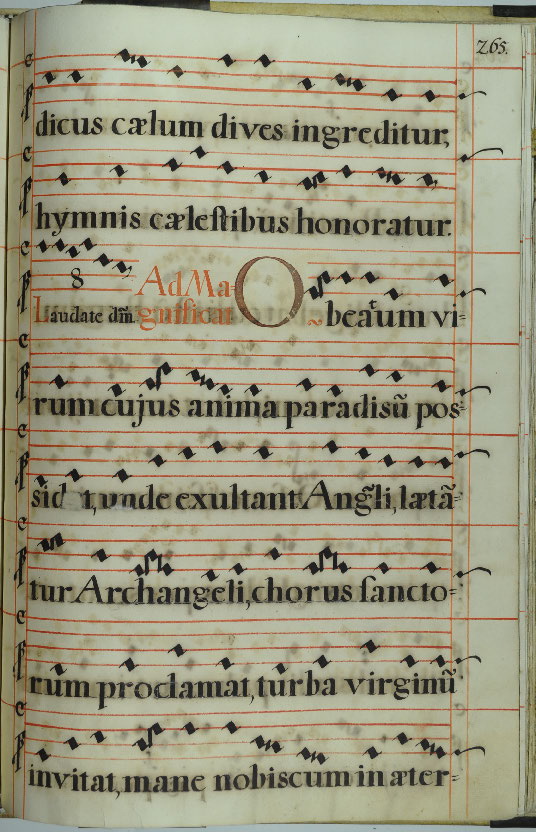 265.
dicus cælum dives ingreditur,
hymnis cælestibus honoratur.
8 Ad Ma-
Laudate dm̃. gnificat O beatum vi-
rum cujus anima paradisũ pos-
sid t, unde exultant Angẽli, lætã-
tur Archangeli, chorus sancto-
rum proclamat, turba virginũ
invitat, mane nobiscum in æter-